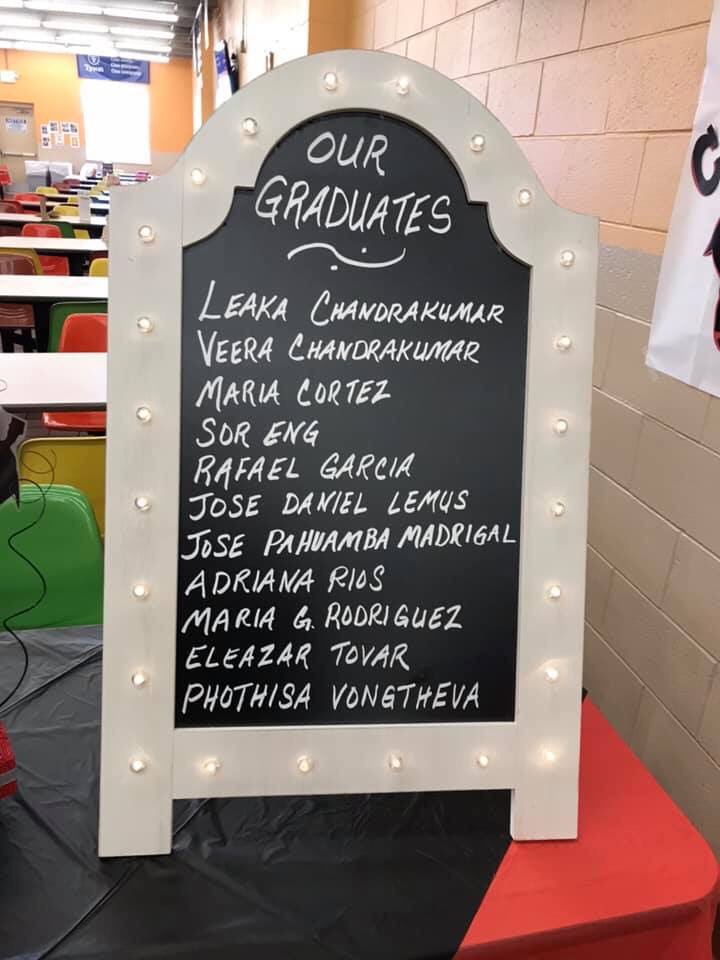 Tyson
OUR
GRADUATES
LEAKA CHANDRAKUMAR
VEERA CHANDRAKUMAR
MARIA CORTEZ
SOR ENG
RAFAEL GARCIA
JOSE DANIEL LEMUS
JOSE PAHUAMBA MADRIGAL
ADRIANA RIOS
MARIA G. RODRIGUEZ
ELEAZAR TOVAR
PHOTHISA VONGTHEVA